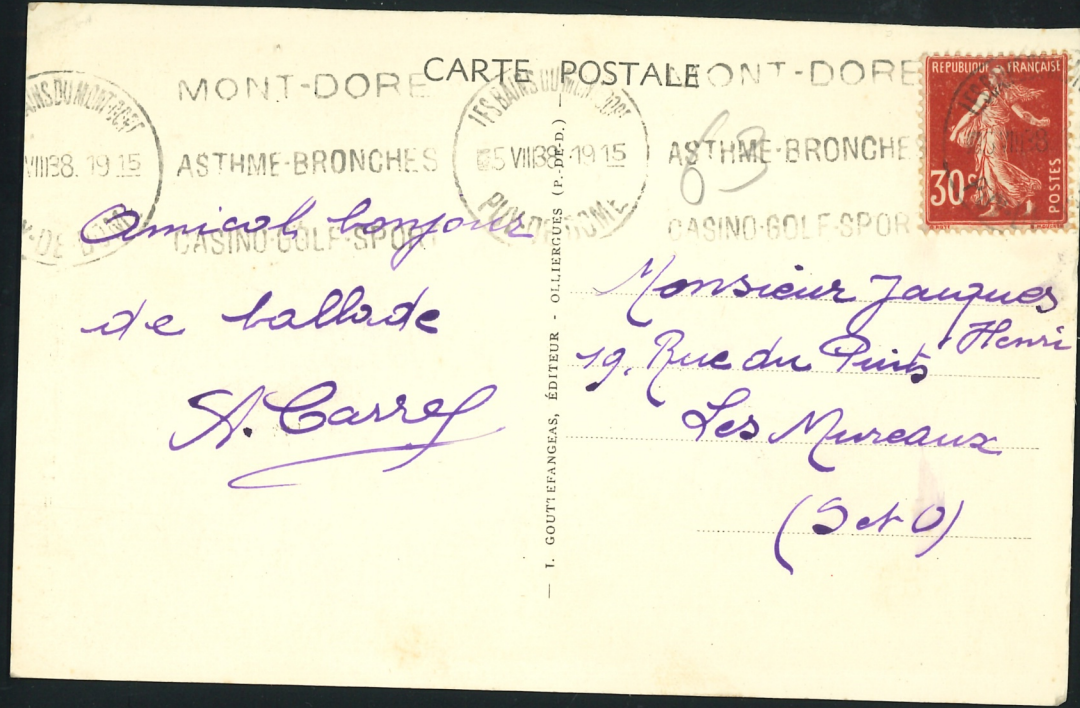 CARTE POSTALE
MONT-DORE
ASTHME-BRONCHES
CASINO-GOLF-SPORT
LES BAINS DU MONT-DORE
VIII38. 19 15
PUY-DE-DOME
LES BAINS DU MONT-DORE
5 VIII38. 19 15
PUY-DE-DOME
MONT-DORE
ASTHME-BRONCHE
CASINO-GOLF-SPOR
REPUBLIQUE FRANÇAISE
30c
POSTES
Amical bonjour
de ballade
A. Carrel
I. GOUTTEFANGEAS, ÉDITEUR - OLLIERGUES (P.-DE-D.)
Monsieur Jacques
Henri
19, Rue du Puits
Les Mureaux
(S et O)